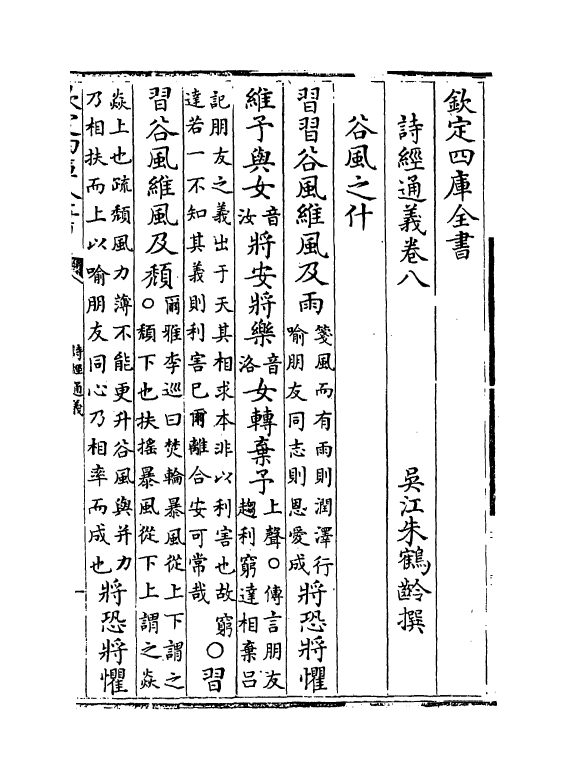 欽定四庫全書
詩經通義卷八　吳江朱鶴齡撰
谷風之什
習習谷風維風及雨箋風而有雨則潤澤行喻朋友同志則恩愛成將恐將懼
維予與女音汝將安將樂音洛女轉棄予上聲○傳言朋友趨利窮達相棄呂
記朋友之義出于天其相求本非以利害也故窮達若一不知其義則利害已爾離合安可常哉○習
習谷風維風及頹○爾雅李巡曰焚輪暴風從上下謂之頹下也扶搖暴風從下上謂之焱
焱上也疏頹風力薄不能更升谷風與并力乃相扶而上以喻朋友同心乃相率而成也將恐將懼
詩經通義
一